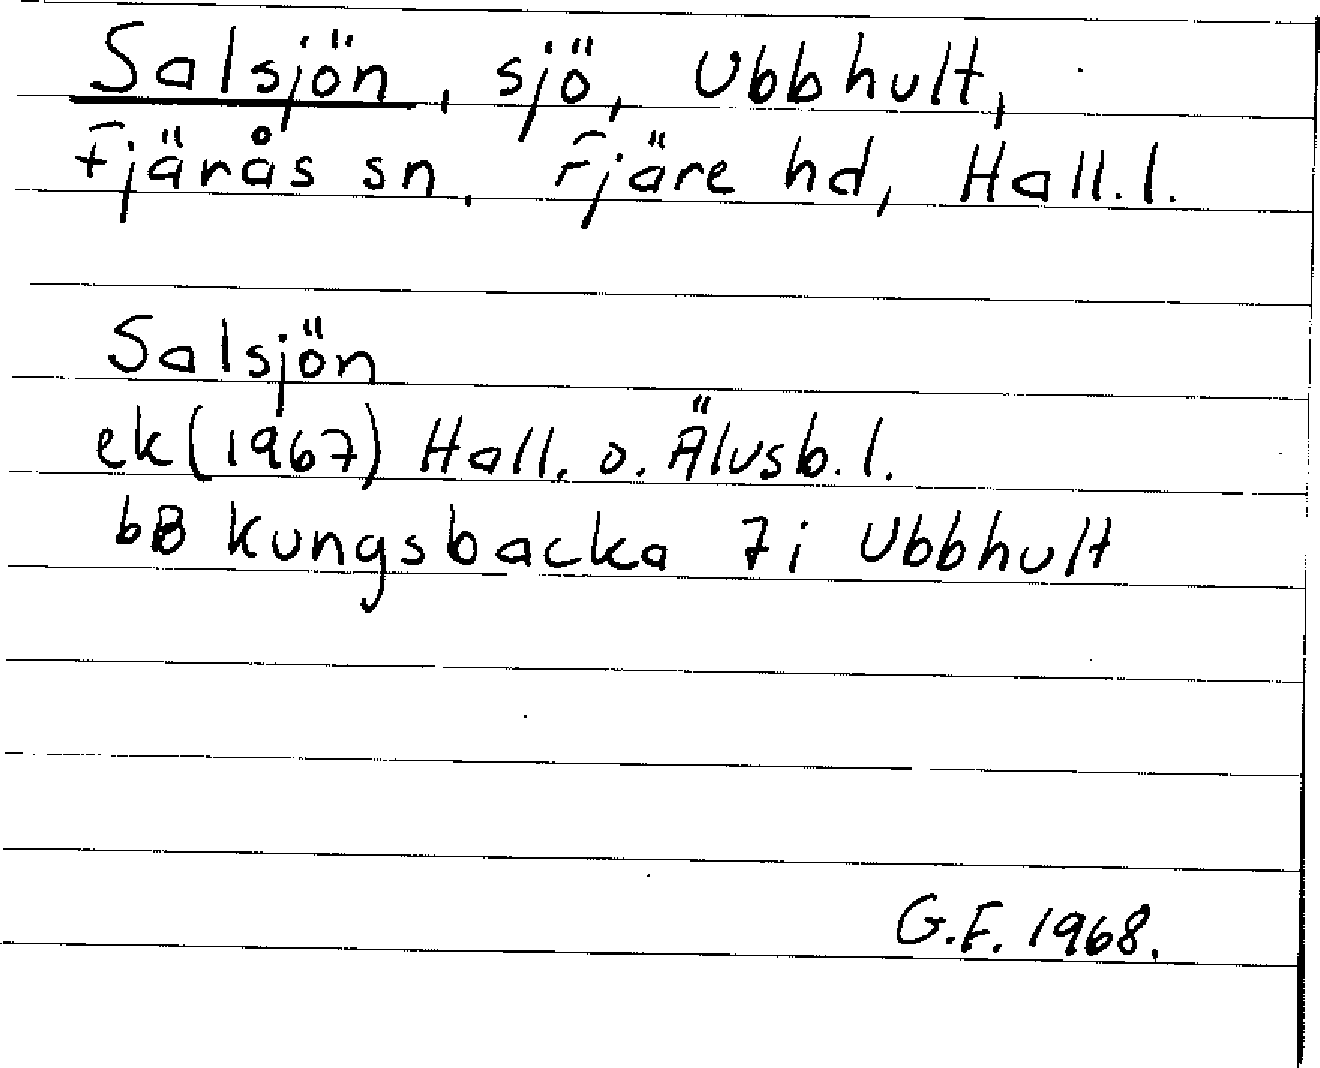 Salsjön, sjö, Ubbhult,
Fjärås sn, Fjäre hd, Hall. l.
Salsjön
ek (1967) Hall. o. Älvsb. l.
bB Kungsbacka 7i Ubbhult
G.F. 1968.